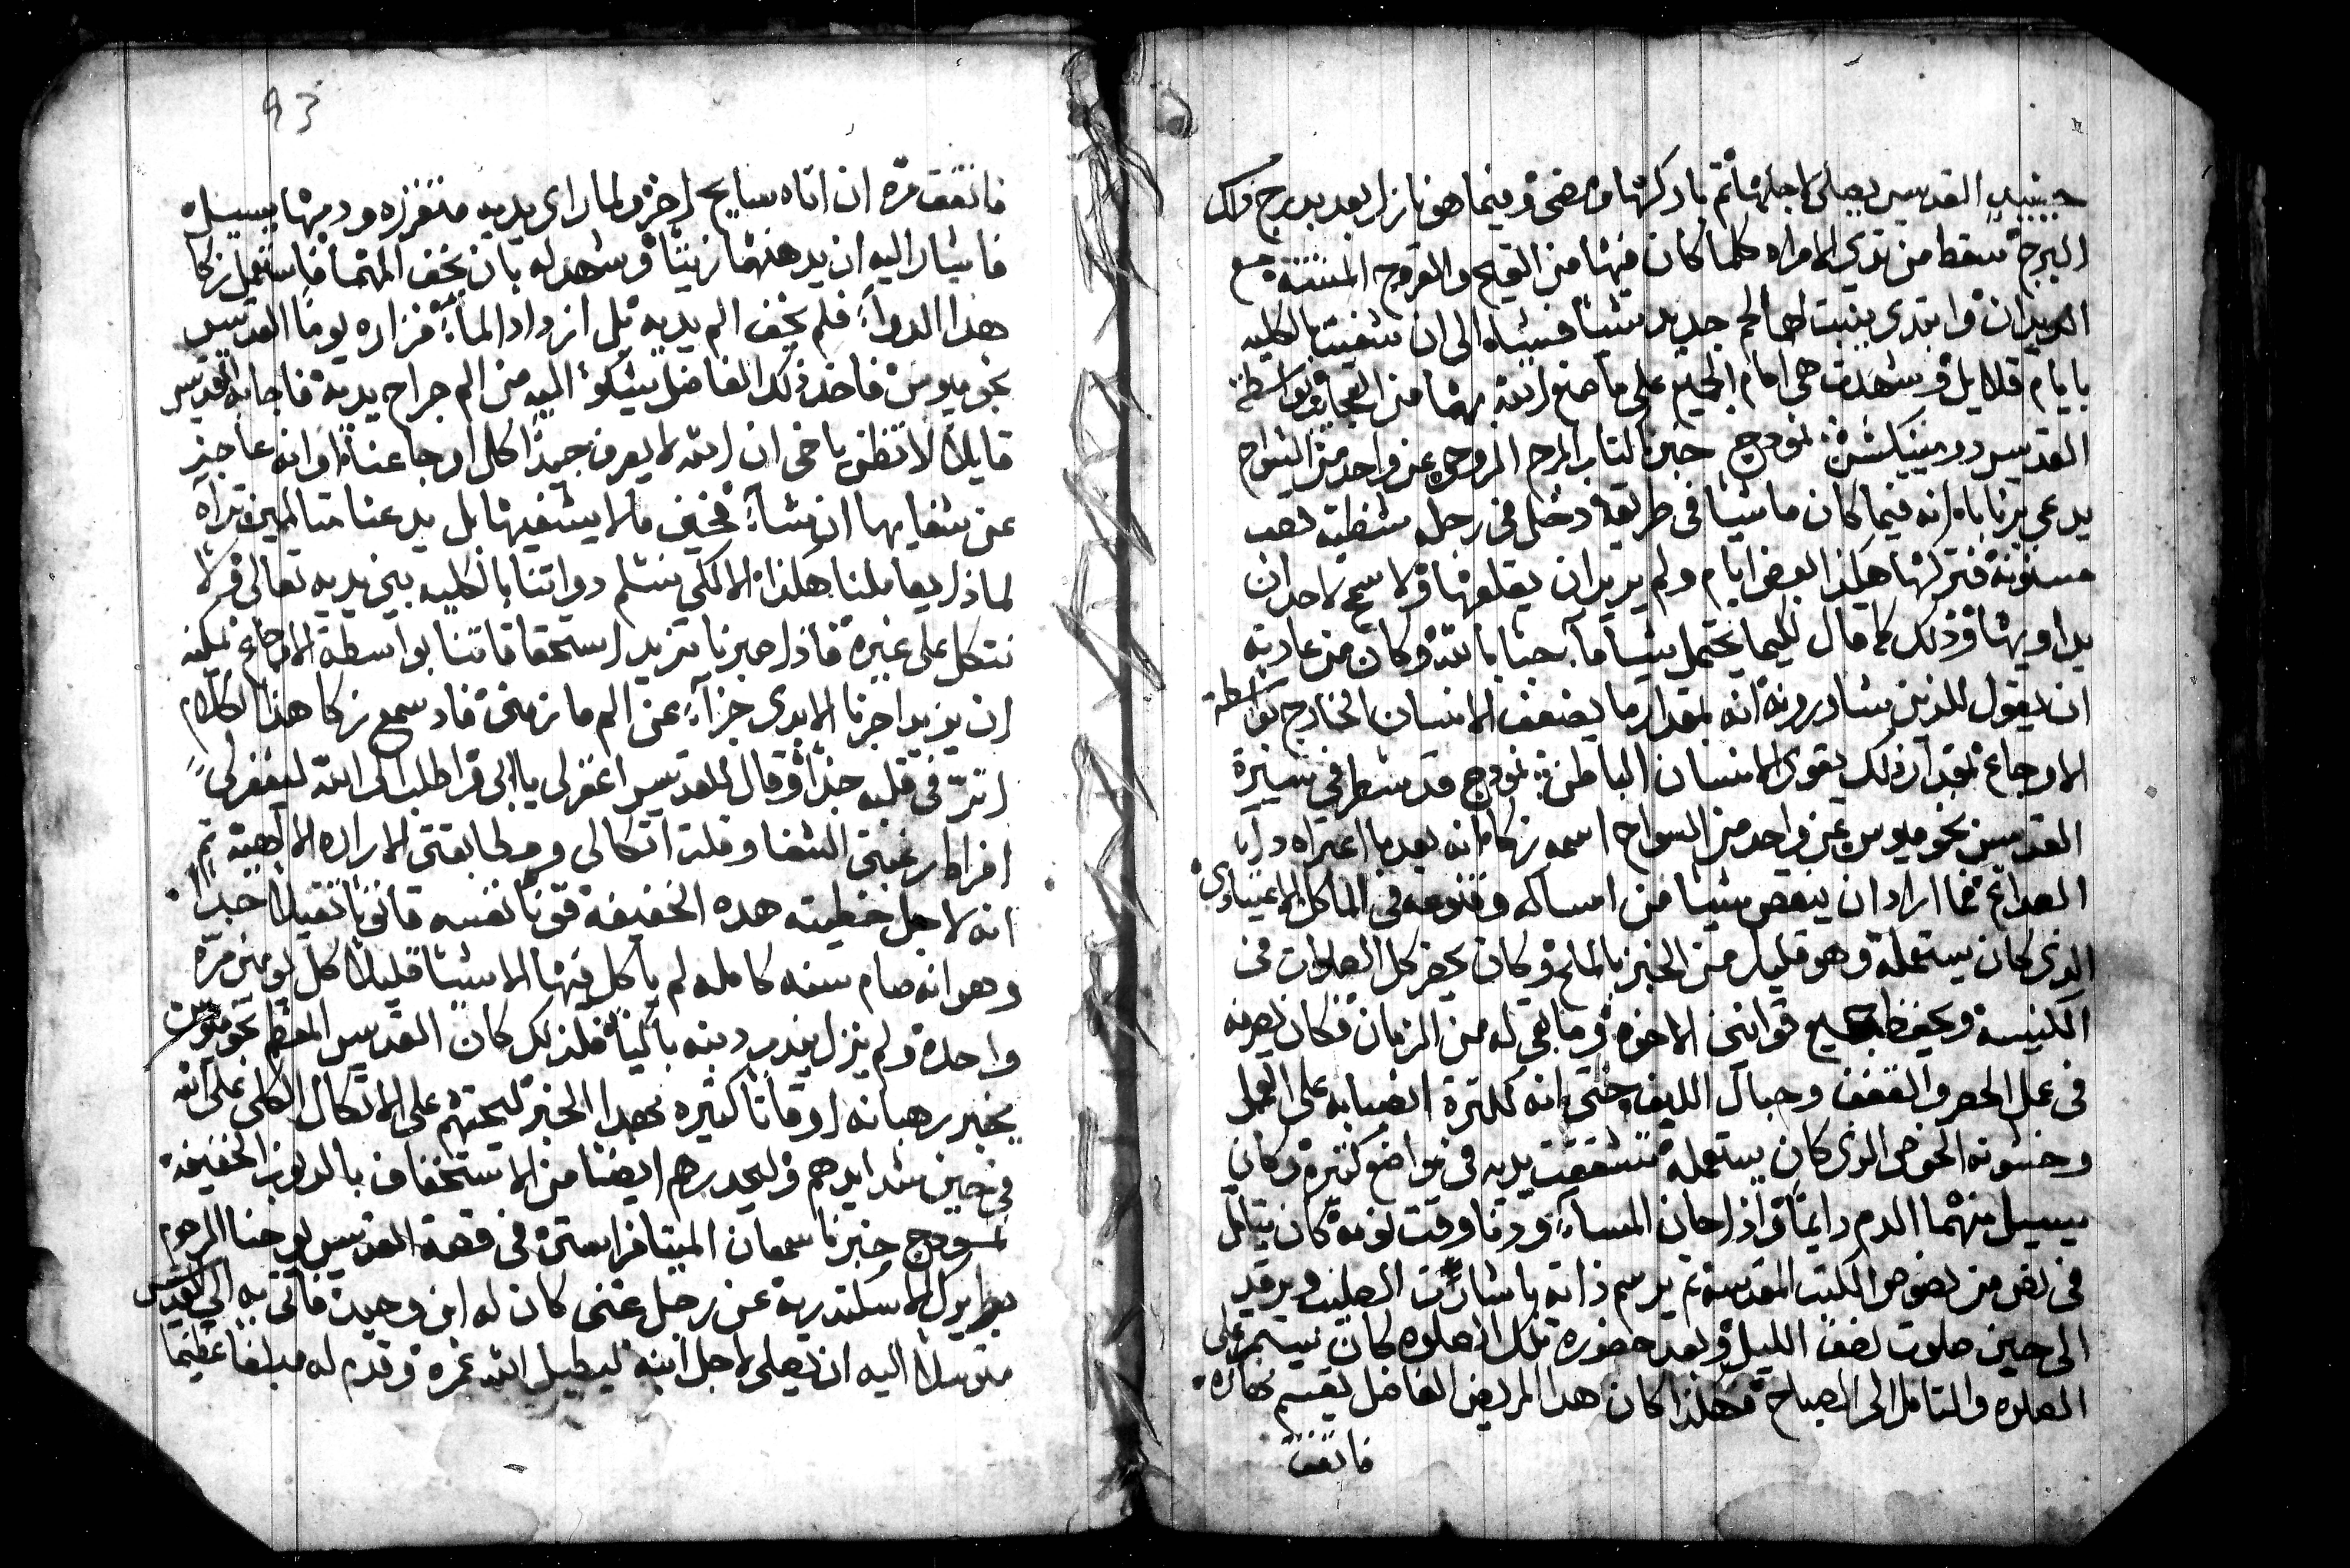 حينيدٍ القديس يصلي لاجلها ثم باركها ومضى وفيما هو نازل بعد بدرج ذلك
البرج سقط من ثدي الامراه كلما كان فيها من القيح والقروح المنتنة مع
الديدان وابتدى ينبت لها لحم جديد شياً فشياه الى ان شفيت بالكليه
بايام قلايل وشهدت هي امام الجميع على ما صنع الله بهما من العجايب بواسطة
القديس دومينيكس نمودج خبرنا كتاب المرج الروحي عن واحد من السواح
يدعى برناباه انه فيما كان ماشيا في طريقه دخل في رجله شظية قصب
مسنونة فتركها هكذا بعض ايام ولم يريد ان يقلعها ولا سمح لاحد ان
يداويها وذلك كما قال لكيما يحتمل شيا ما حبا بالله وكان من عادته
ان يقول للذين يشاورونه انه بمقدار ما يضعف الانسان الخارج بواسطة
الاوجاع بمقدار ذلك يقوى الانسان الباطن نمودج قد سطر في سيرة
القديس بخوميوس عن واحد من السواح اسمه زكا انه بعدما اعتراه دا
الصداع فما اراد ان ينقص شيا من امساكه وقنوعه في الماكل الاعتيادي
الذي كان يستعمله وهو قليل من الخبز بالملح وكان يحضر كل الصلوات في
الكنيسة ويحفظ جميع قوانين الاخوه وما بقي له من الزمان فكان يصرفه
في عمل الحصر والقفف وحبال الليف حتى انه لكثرة انصبابه على العمل
وخشونه الخوص الذي كان يستعمله تشققت يديه في مواضع كثيرة وكان
يسيل منهما الدم دايماً واذا حان المساء ودنا وقت نومه كان يتامل
في نص من نصوص الكتب المقدسة ثم يرسم ذاته باشارت الصليب ويرقد
الى حين صلوت نصف الليل وبعد حضوره تلك الصلوه كان يستمر على
الصلوه والتامل الى الصباح فهكذا كان هدا المريض الفاضل يقسم نهاره
فاتفق
93
فاتفق مرة ان اتاه سايح اخر ولما راى يديه متقززه ودمها يسيل
فاشار اليه ان يدهنهما زيتاً وشهد له بان يخف المهما فاستعمل زكا
هدا الدوا فلم يخف الم يديه بل ازداد الماً فزاره يوماً القديس
بخوميوس فاخذ ذلك الفاضل يشكو اليه من الم جراح يديه فاجابه القديس
قايلاً لا تظن يا اخي ان الله لا يعرف جيداً كل اوجاعنا او انه عاجز
عن شفايها ان شا فحين ما لا يشفيها بل يدعنا متالمين تراه
لماذا يعاملنا هكذا الا لكي نسلم دواتنا بالكليه بين يديه تعالى ولا
نتكل على غيره فاذا صبرنا تزيد استحقاقاتنا بواسطة الاوجاع يمكنه
ان يزيد اجرنا الابدي جزاءً عن الم ما زمني فاد سمع زكا هذا الكلام
اثر في قلبه جداً وقال للقديس اغفر لي يا ابي واطلب الى الله ليغفر لي
افراط رغبتي الشفا وقلت اتكالي ومطابقتي الاراده الالهية ثم
انه لاجل خطيته هده الخفيفه قنن نفسه قانوناً ثقيلاً جداً
وهو انه صام سنه كامله لم ياكل فيها الا شياً قليلاً كل يومين مرة
واحدة ولم يزل يندب دنبه باكياً فلذلك كان القديس المعظم بخوميوس
يخبر رهبانه اوقاتاً كثيره بهدا الخبر ليحثهم على الاتكال الكلي على الله
في حين شدايدهم وليحدرهم ايضاً من الاستخفاف بالدنوب الخفيفه
نمودج خبرنا سمعان الميتافراستي في قصة القديس يوحنا الرحوم
بطريرك الاسكندرية عن رجل غني كان له ابن وحيد فاتى به الى القديس
متوسلاً اليه ان يصلي لاجل ابنه ليطيل الله عمره وقدم له مبلغاً عظيماً